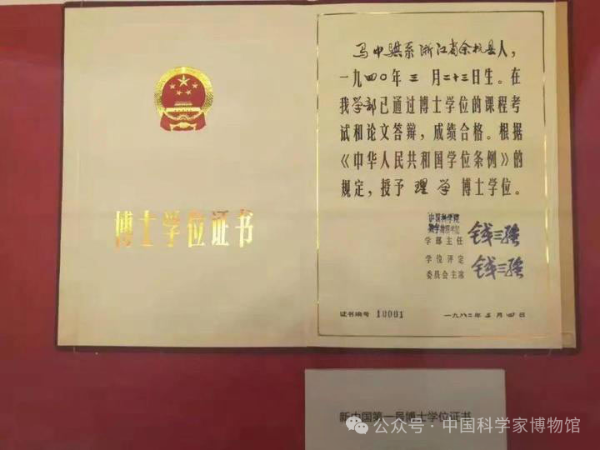 博士学位证书
马中骐系浙江省余杭县人，
一九四〇年三月二十三日生。在
我学部已通过博士学位的课程考
试和论文答辩，成绩合格。根据
《中华人民共和国学位条例》的
规定，授予理学博士学位。
中国科学院
学部主任 钱三强
学位评定
委员会主席 钱三强
证书编号 10001
一九八二年 月 日
新中国第一号博士学位证书
公众号 · 中国科学家博物馆